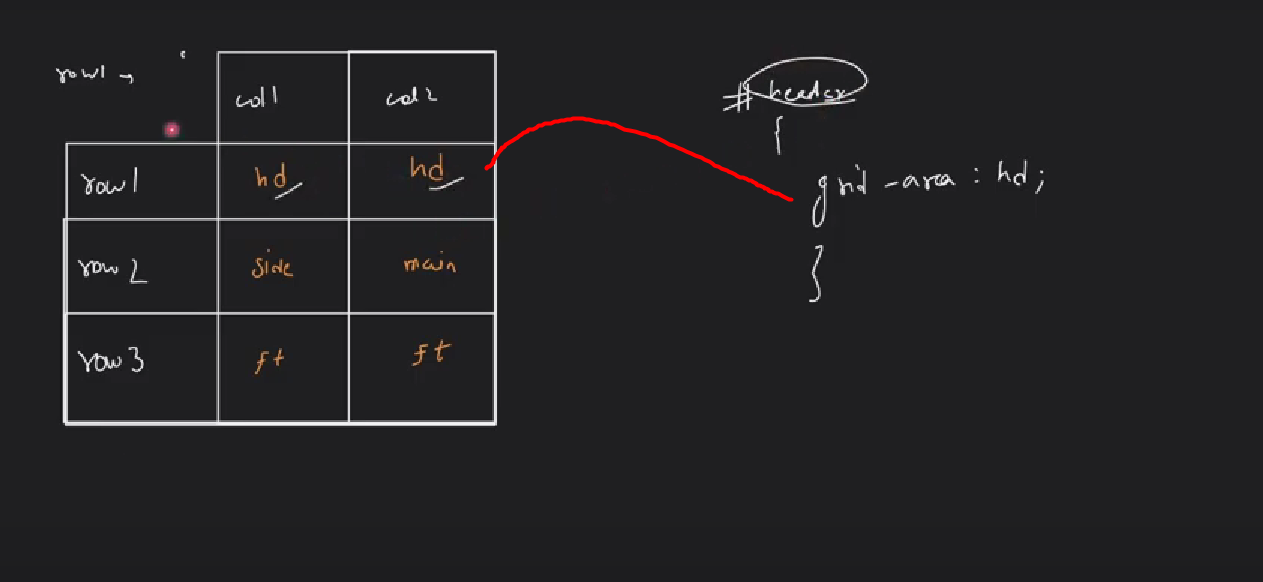 row1 ,
col1 col2
row1 hd hd
row2 side main
row3 ft ft
#header
{
grid-area : hd;
}